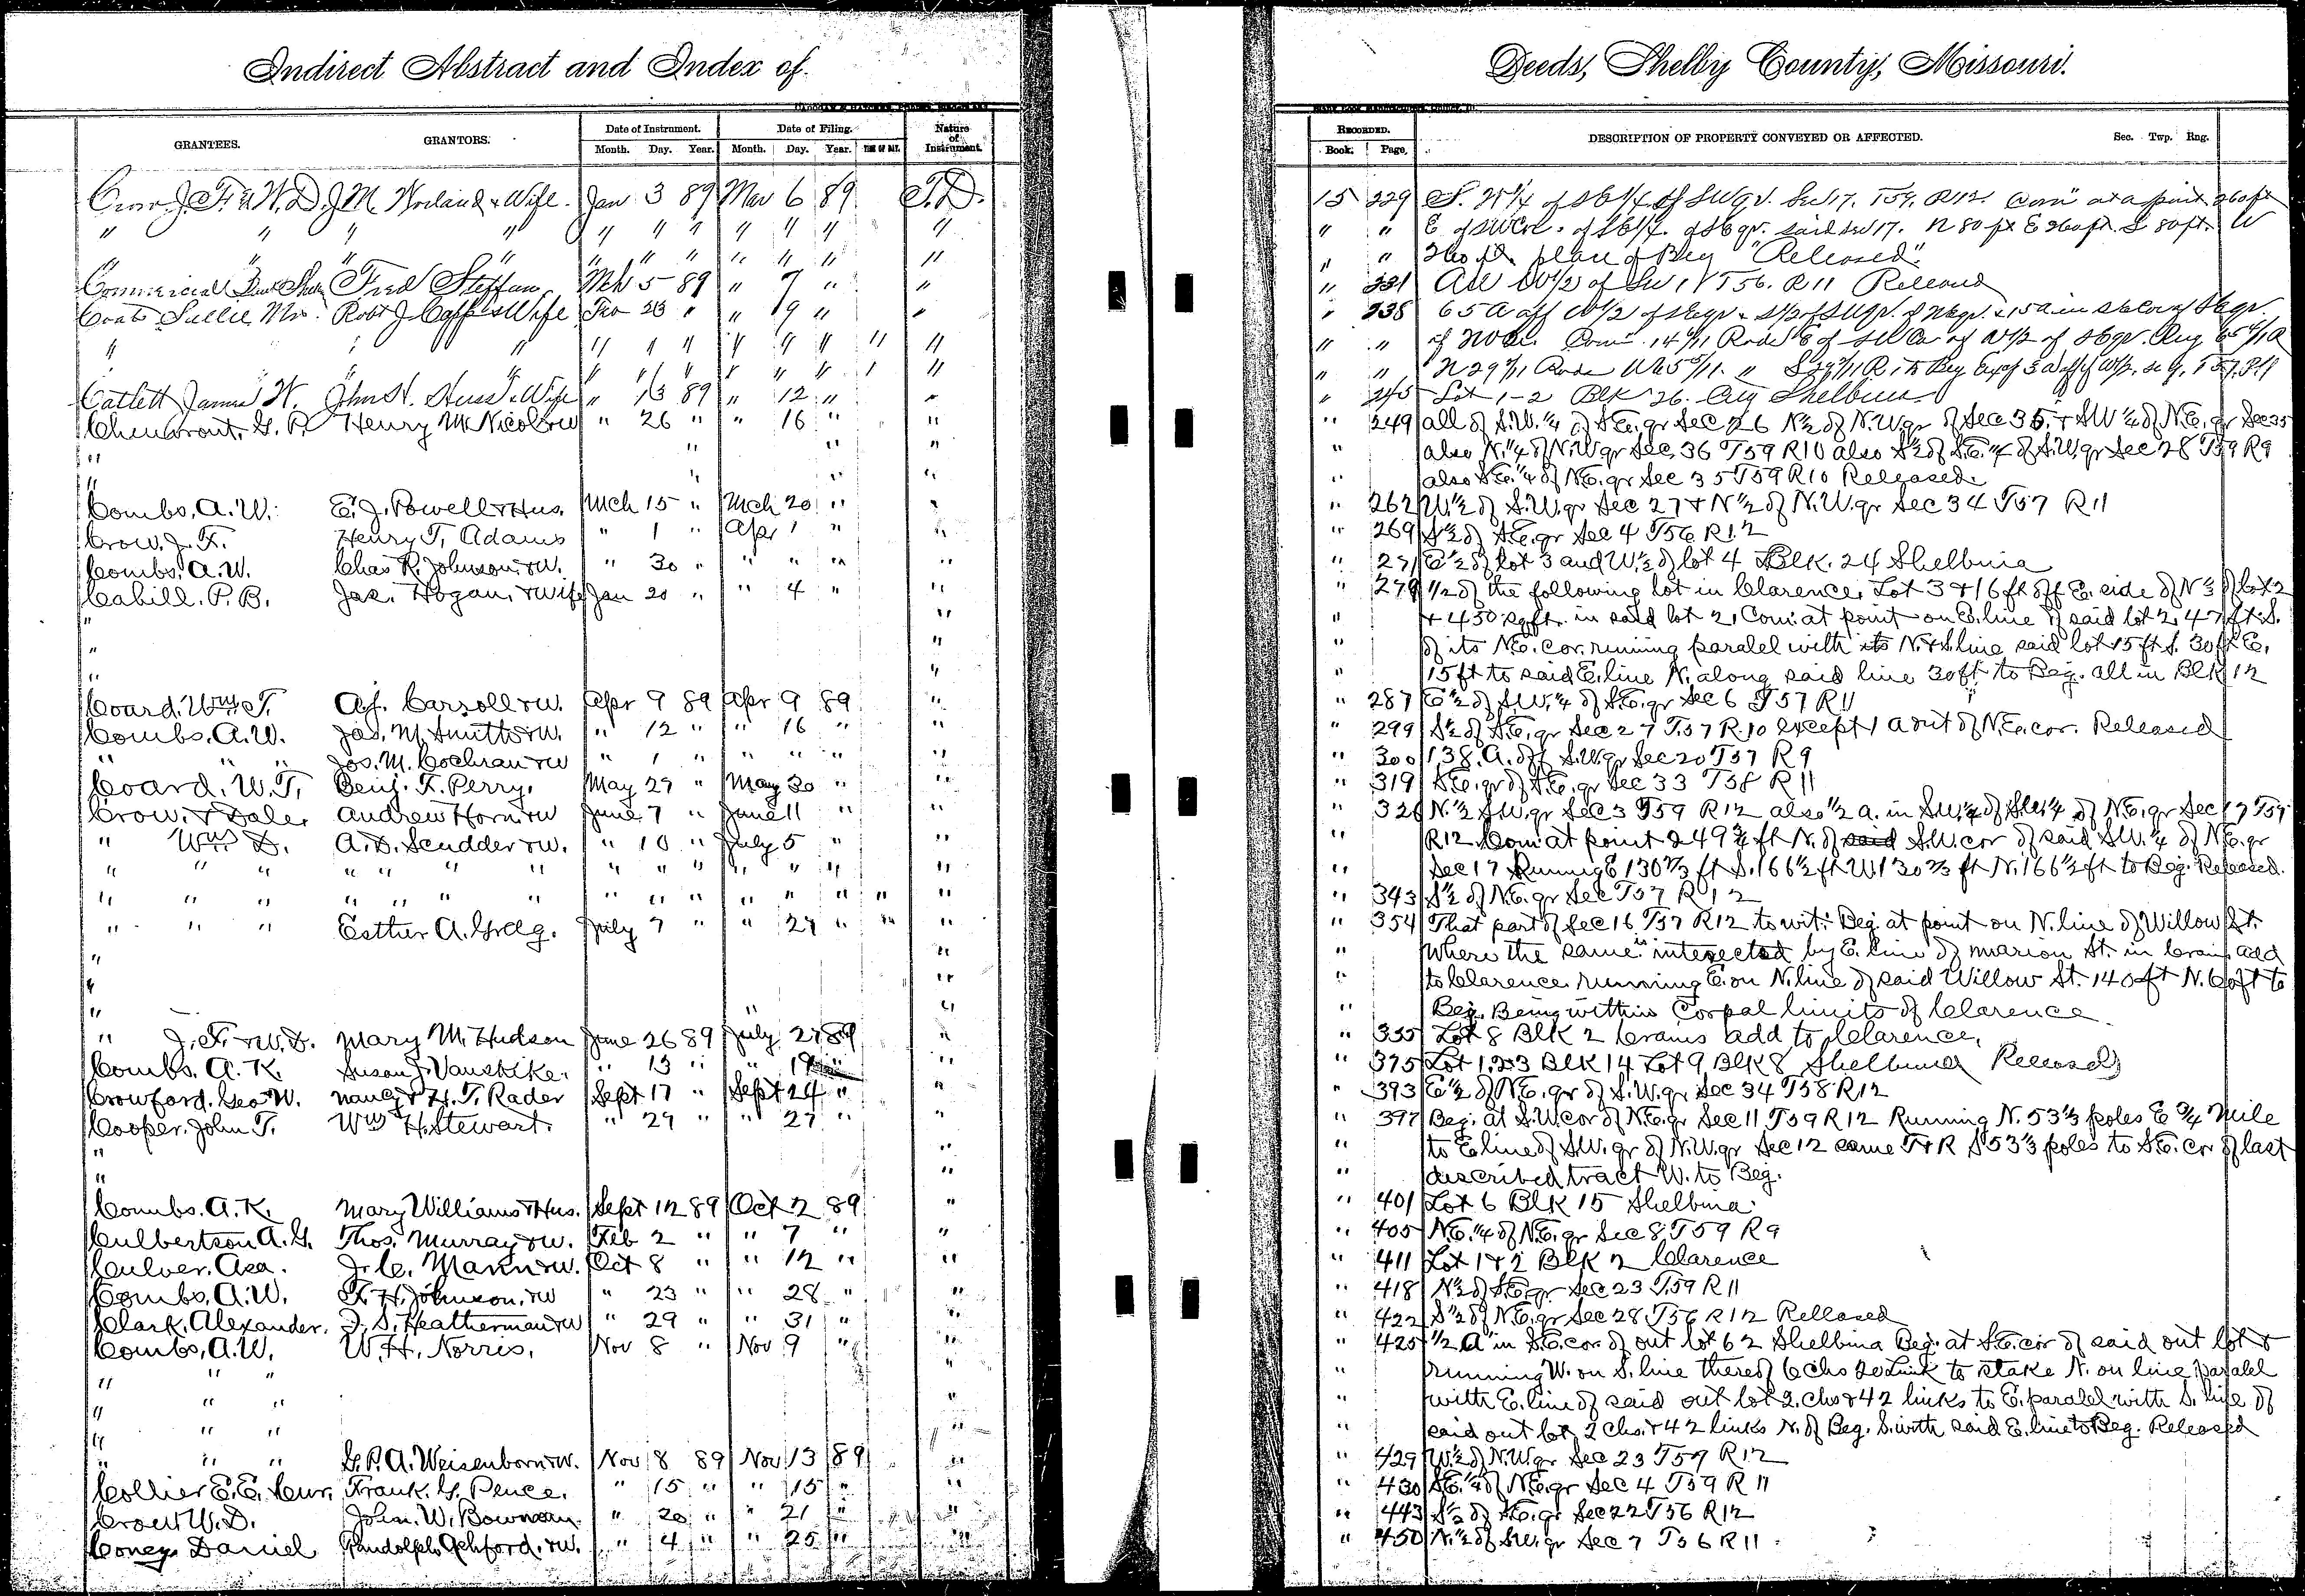 Indirect Abstract and Index of
Deeds, Shelby County, Missouri.
GRANTEES. GRANTORS. Date of Instrument. Date of Filing. Nature of Instrument. RECORDED. DESCRIPTION OF PROPERTY CONVEYED OR AFFECTED. Sec. Twp. Rng.
Month. Day. Year. Month. Day. Year. TIME OF DAY. Book. Page.
Crow J. F. & W. D. J M. Worland & Wife. Jan 3 89 Mar 6 89 T.D. 15 229 S. W 1/4 of SE 1/4 of SWqr. Sec 17. T57. R12. Com at a point 260 ft
" " " " " " " " " " " " " E of SW Cor. of SE 1/4. of SEqr. said Sec 17. N 80 ft E 260 ft. S 80 ft. W
" " " " " " " " " " " " " 260 ft. place of Beg "Released".
Commercial Bank Fred Steffan Mch 5 89 " 7 " " " 231 All W 1/2 of Sec 1 T56. R11 Released
Coats Sallie Mrs. Robt J. Capp & Wife 23 " " 9 " " " 238 65 a off W 1/2 of SEqr & S 1/2 of SWqr. of NEqr. & 15 a in SE Cor of SEqr.
" " " " " " " " " " " " " of NWqr. Com 14 6/11 Rods E of SW Cor of W 1/2 of SEqr.
" " " " " " " " " " " " N 29 Rods W 65 5/11 " to Beg T57. R11
Catlett James W. John H. Huss & Wife " 13 89 " 12 " " " 245 Lot 1-2 Blk 26. Shelbina
Chenoront, G. P. Henry McNicol & W " 26 " " 16 " " " 249 all of S.W. 1/4 of S.E. qr Sec 26 N 1/2 of N.W. qr of Sec 35. & SW 1/4 of N.E. qr Sec 35
" " " " " also N. 1/4 of N.W qr Sec. 36 T59 R10 also S 1/2 of S.E. 1/4 of S.W. qr Sec 28 T59 R9
" " " " " also S.E. 1/4 of N.E. qr Sec 35 T59 R10 Released
Combs, A. W. E. J. Powell & Hus. Mch 15 " Mch 20 " " " 262 W 1/2 of S.W. qr Sec 27 & N 1/2 of N.W. qr Sec 34 T57 R11
Crow. J. F. Henry T. Adams " 1 " Apr 1 " " " 269 S 1/2 of S.E. qr Sec 4 T56 R12
Combs, A. W. Chas R. Johnson & W. " 30 " " " " " " 271 E 1/2 of lot 3 and W 1/2 of lot 4 Blk. 24 Shelbina
Cahill. P. B. Jas. Hogan, & Wife Jan 20 " " 4 " " " 279 1/2 of the following lot in Clarence, Lot 3 & 16 ft off E. side of N 1/3 of lot 2
" " " & 450 sqft. in said lot 2, Com at point on E. line of said lot 2, 47 ft. S.
" " " of its N.E. cor. running paralel with its N. & S. line said lot 15 ft S. 30 ft E.
" " " 15 ft to said E. line N. along said line 30 ft to Beg. all in Blk 12
Coard. Wm. T. A. J. Carroll & W. Apr 9 89 Apr 9 89 " " 287 E 1/2 of S.W. 1/4 of S.E. qr Sec 6 T57 R11
Combs. A. W. Jas. M. Smith & W. " 12 " " 16 " " " 299 S 1/2 of S.E. qr Sec 27 T.57 R.10 except 1 a out of N.E. cor. Released
" " Jos. M. Cochran & W " 1 " " " " " " 300 138. A. off S.W. qr Sec 20 T57 R9
Coard. W. T. Benj. F. Perry. May 27 " May 30 " " " 319 S.E. qr of S.E. qr Sec 33 T58 R11
Crow, & Dale, Andrew Horn & W June 7 " June 11 " " " 326 N. 1/2 SW. qr Sec 3 T59 R12 also 1/2 a. in S.W. 1/4 of S.W. 1/4 of N.E. qr Sec 17 T57
" Wm D. A. D. Scudder & W. " 10 " July 5 " " " R12 Com at point 249 3/4 ft N. of said S.W. cor of said S.W. 1/4 of N.E. qr
" " " " " " " " " " " " " " " Sec 17 Running E 130 2/3 ft S. 166 1/2 ft W 130 2/3 ft N. 166 1/2 ft to Beg. Released.
" " " " " " " " " " " " " " " " " 343 S 1/2 of N.E. qr Sec T57 R12
" " " Esther A. Gregg. July 7 " " 27 " " " " 354 That part of Sec 16 T57 R12 to wit: Beg. at point on N. line of Willow St.
" " " Where the same is intersected by E. line of Marion St. in Crains add
" " " to Clarence running E. on N. line of said Willow St. 140 ft N. 60 ft to
" " " " Beg. Being within Corpal limits of Clarence
" J. F. & W. D. Mary M. Hudson June 26 89 July 27 89 " " 355 Lot 8 Blk 2 Crains add to Clarence.
Combs. A. K. Susan J. Vanskike. " 13 " " 19 " " 375 Lot 1.2&3 Blk 14 Lot 9 Blk 8 Shelbina Released
Crowford. Geo W. Nancy & H. T. Rader Sept 17 " Sept 24 " " " 393 E 1/2 of N.E. qr of S.W. qr Sec 34 T58 R12
Cooper. John T. Wm H. Stewart. " 29 " " 27 " " " 397 Beg. at S.W. cor of N.E. qr Sec 11 T59 R12 Running N. 53 1/3 poles E 3/4 Mile
" " " to E line of S.W. qr of N.W. qr Sec 12 same T & R S 53 1/3 poles to S.E. cor of last
" " " described tract W. to Beg.
Combs. A. K. Mary Williams & Hus. Sept 12 89 Oct 2 89 " " 401 Lot 6 Blk 15 Shelbina
Culbertson A. G. Thos. Murray & W. Feb 2 " " 7 " " " 405 N.E. 1/4 of N.E. qr Sec 8 T59 R9
Culver. Asa. J. C. Mann & W. Oct 8 " " 12 " " " 411 Lot 1 & 2 Blk 2 Clarence
Combs, A. W. F. H. Johnson, & W " 23 " " 28 " " " 418 N 1/2 of S.E. qr Sec 23 T.59 R11
Clark. Alexander. F. S. Heatherman & W " 29 " " 31 " " " 422 S 1/2 of N.E. qr Sec 28 T56 R12 Released
Combs, A. W. W. H. Norris. Nov 8 " Nov 9 " " " 425 1/2 A in S.E. cor. of out lot 62 Shelbina Beg. at S.E. cor of said out lot &
" " " " " running W. on S. line thereof 6 chs 20 Link to stake N. on line paralel
" " " " " with E. line of said out lot 2, chs & 42 links to E. paralel with S. line of
" " " " " said out lot 2 chs. & 42 links N. of Beg. S. with said E. line to Beg. Released
" " " G. P. A. Weisenborn & W. Nov 8 89 Nov 13 89 " " 429 W. 1/2 of N.W. qr Sec 23 T57 R12
Collier E. E. Cur. Frank. G. Pence. " 15 " " 15 " " " 430 S.E. 1/4 of N.E. qr Sec 4 T59 R11
Crow W. D. John. W. Bowman " 20 " " 21 " " " 443 S 1/2 of S.E. qr Sec 22 T56 R12
Coney Daniel Randolph Ashford. & W. " 4 " " 25 " " " 450 N. 1/2 of S.W. qr Sec 7 T56 R11